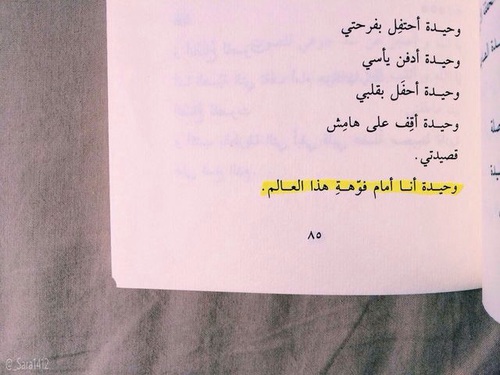 وحيدة أحتفِل بفرحتي
وحيدة أدفن يأسي
وحيدة أحفَل بقلبي
وحيدة أقِف على هامِش
قصيدتي.
وحيدة أنا أمام فوّهةِ هذا العالم.
٨٥
@_Sara1412